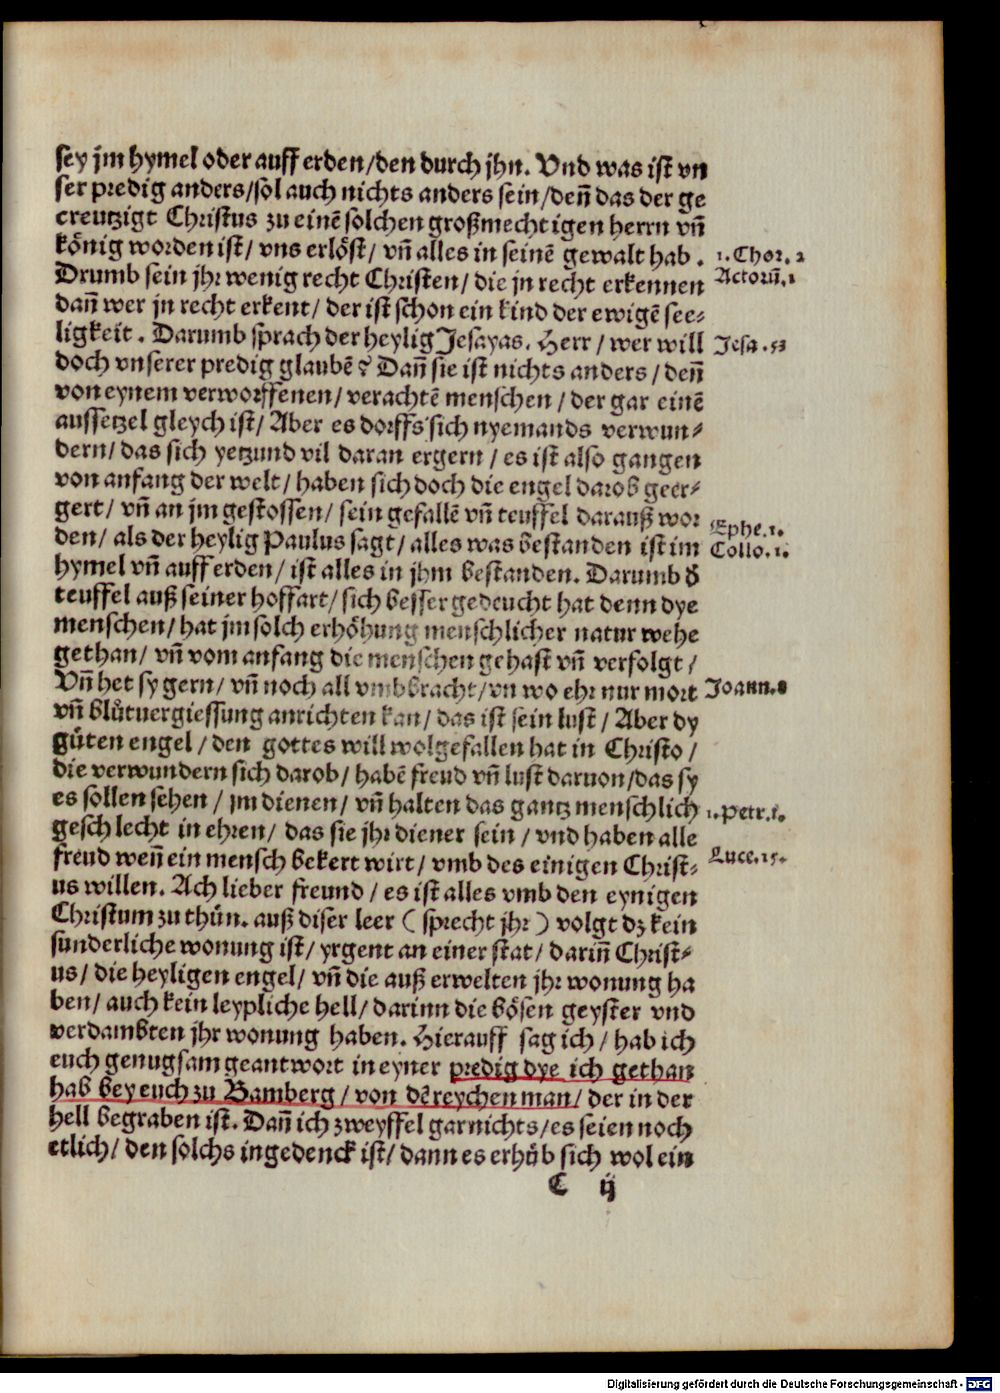 sey jm hymel oder auff erden/den durch jhn. Vnd was ist vn
ser predig anders/sol auch nichts anders sein/deñ das der ge
creutzigt Christus zu einē solchen großmechtigen herrn vñ
könig worden ist/ vns erlöst/ vñ alles in seinē gewalt hab .
1. Chor. 2
Drumb sein jhr wenig recht Christen/ die jn recht erkennen
Actorū. 1
dañ wer jn recht erkent/ der ist schon ein kind der ewigē see⸗
ligkeit . Darumb sprach der heylig Jesayas. Herr/ wer will
Jesa . 53
doch vnserer predig glaubē? Dañ sie ist nichts anders/ deñ
von eynem verworffenen/ verachtē menschen/ der gar einē
aussetzel gleych ist/ Aber es dorffs sich nyemands verwun⸗
dern/ das sich yetzund vil daran ergern/ es ist also gangen
von anfang der welt/ haben sich doch die engel darob geer⸗
gert/ vñ an jm gestossen/ sein gefallē vñ teuffel darauß wor
Ephe. 1.
den/ als der heylig Paulus sagt/ alles was bestanden ist im
Collo. 1.
hymel vñ auff erden/ ist alles in jhm bestanden. Darumb d̄
teuffel auß seiner hoffart/ sich besser gedeucht hat denn dye
menschen/ hat jm solch erhöhung menschlicher natur wehe
gethan/ vñ vom anfang die menschen gehast vñ verfolgt/
Vñ het sy gern/ vñ noch all vmbbracht/ vn wo ehr nur mort
Joann. 8
vñ blůtuergiessung anrichten kan/ das ist sein lust/ Aber dy
gůten engel/ den gottes will wolgefallen hat in Christo/
die verwundern sich darob/ habē freud vñ lust daruon/das sy
es sollen sehen/ jm dienen/ vñ halten das gantz menschlich
1. Petr. 1.
geschlecht in ehren/ das sie jhr diener sein/ vnd haben alle
freud weñ ein mensch bekert wirt/ vmb des einigen Christ⸗
Luce. 15.
us willen. Ach lieber freund/ es ist alles vmb den eynigen
Christum zu thůn. auß diser leer ( sprecht jhr ) volgt dz kein
sunderliche wonung ist/ yrgent an einer stat/ dariñ Christ⸗
us/ die heyligen engel/ vñ die auß erwelten jhr wonung ha
ben/ auch kein leypliche hell/ darinn die bösen geyster vnd
verdambten jhr wonung haben. Hierauff sag ich/ hab ich
euch genugsam geantwort in eyner predig dye ich gethan
hab bey euch zu Bamberg/ von dē reychen man/ der in der
hell begraben ist. Dañ ich zweyffel gar nichts/ es seien noch
etlich/ den solchs ingedenck ist/ dann es erhůb sich wol ein
C ij
Digitalisierung gefördert durch die Deutsche Forschungsgemeinschaft - DFG